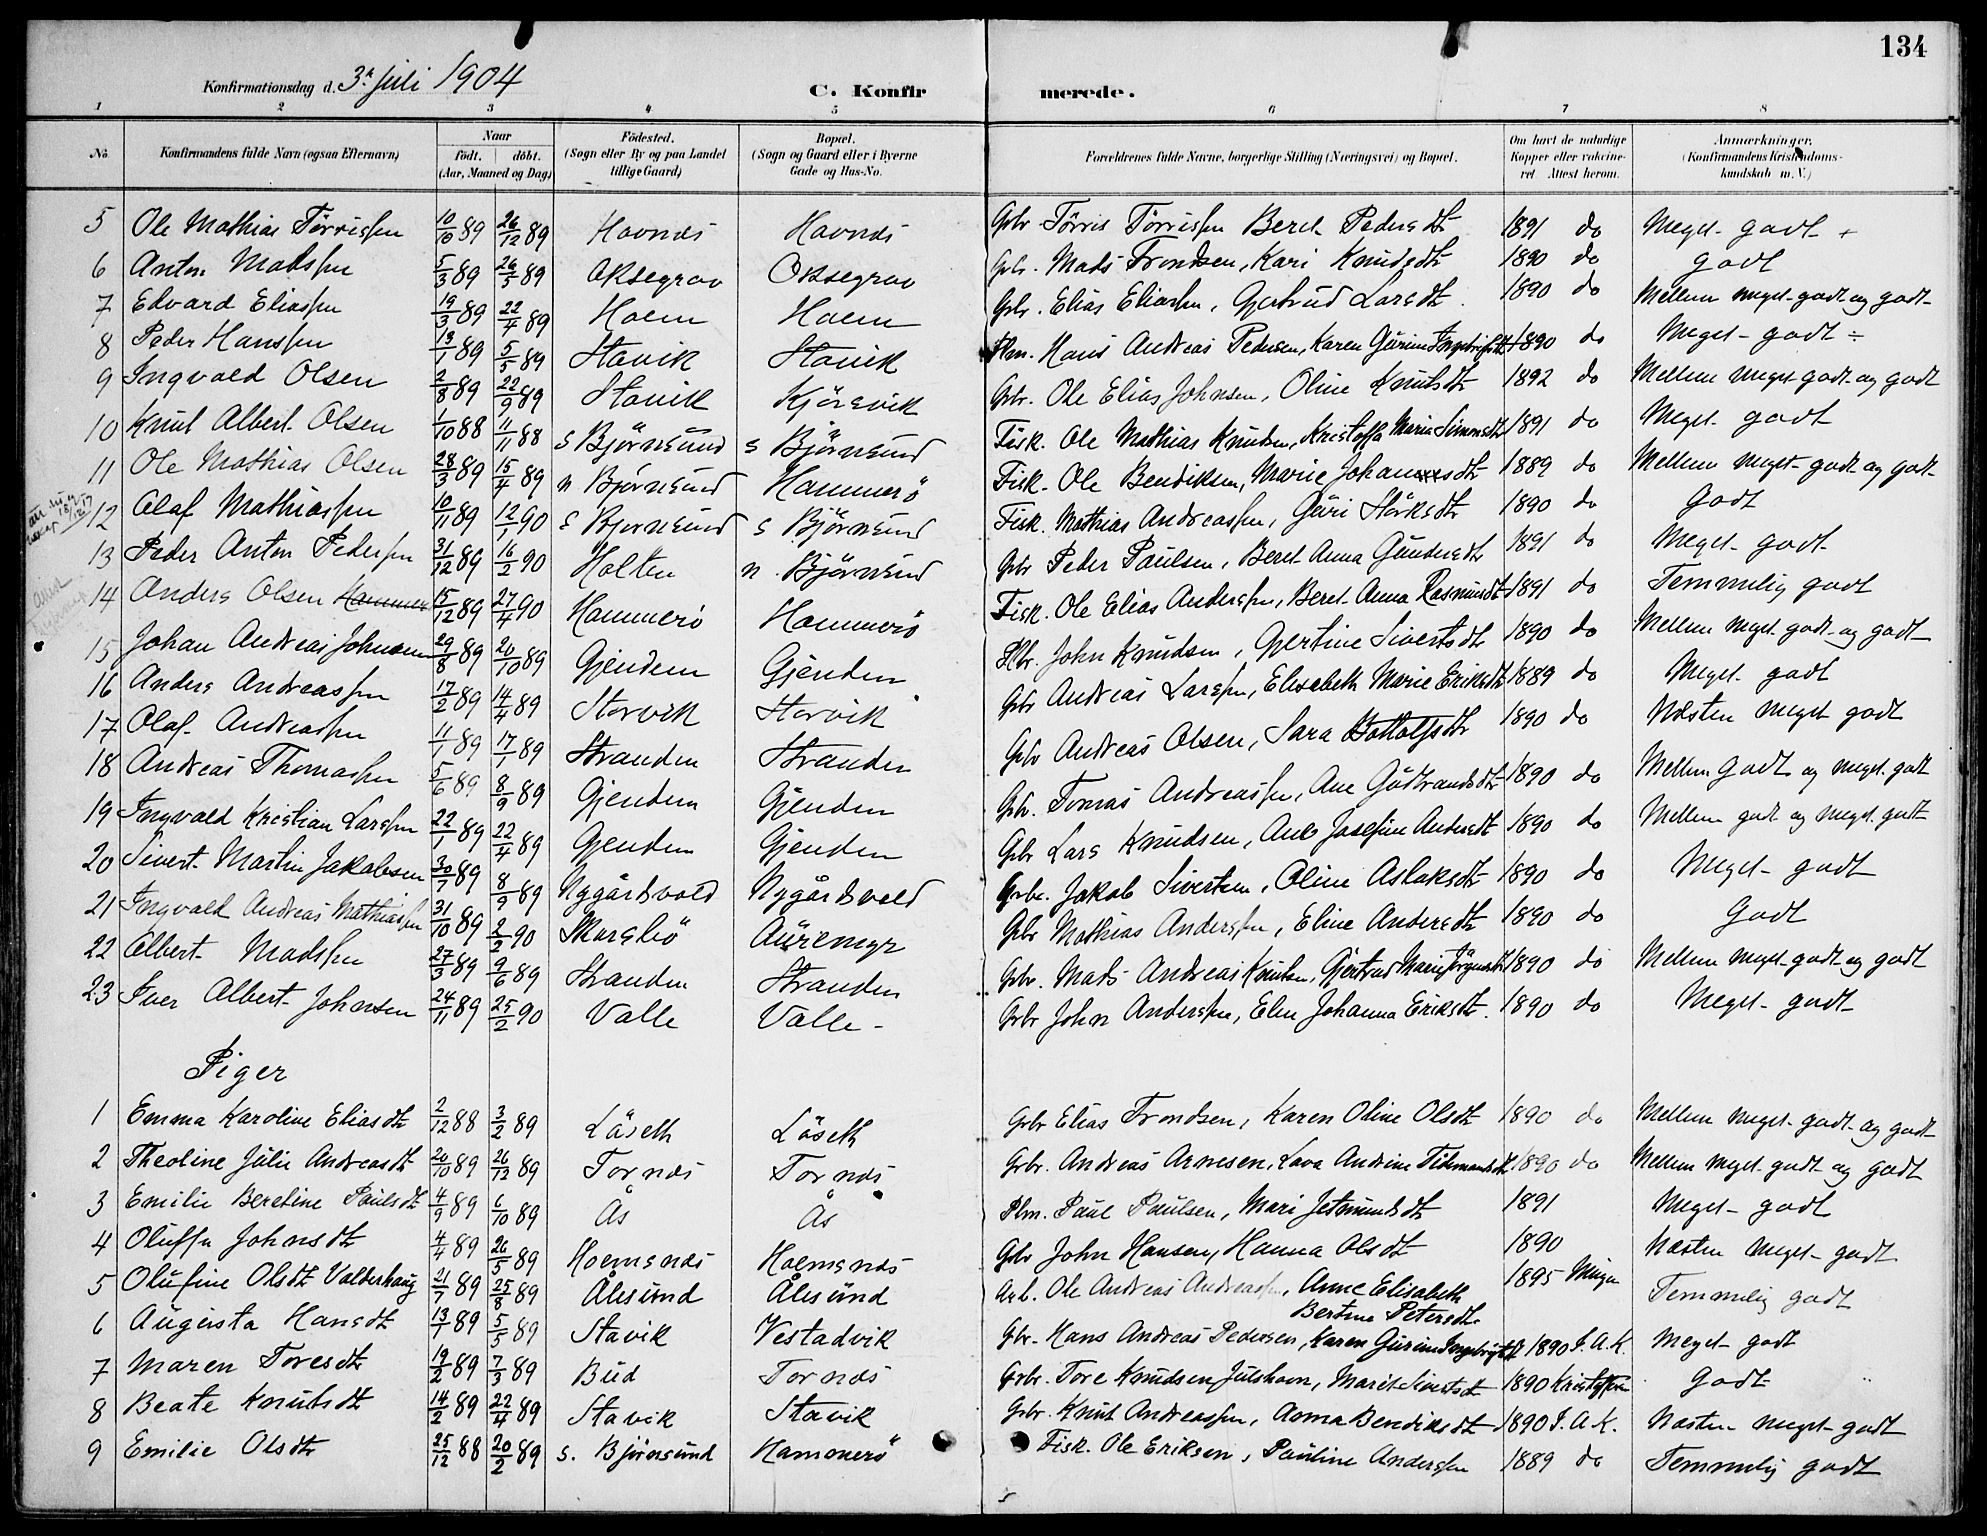 134
Konfirmationsdag d. 3. Juli 1904
C. Konfirmerede.
1 2 3 4 5 6 7 8
No. Konfirmandens fulde Navn (ogsaa Efternavn) Naar født. døbt. (Aar, Maaned og Dag) Fødested. (Sogn eller By og paa Landet tillige Gaard) Bopæl. (Sogn og Gaard eller i Byerne Gade og Hus-No. Forældrenes fulde Navne, borgerlige Stilling (Næringsvei) og Bopæl. Om havt de naturlige Kopper eller vakcineret Attest herom. Anmærkninger. (Konfirmandens Kristendomskundskab m. V.)
5 Ole Mathias Tørrissen 10/10 89 26/12 89 Havnes Havnes Gbr. Tørris Tørrissen Beret Pedersdt 1891 do Meget godt +
6 Anton Madssen 5/3 89 26/5 89 Oksegrav Oksegrav Gbr. Mads Trondsen, Kari Knudsdt 1890 do godt
7 Edvard Eliassen 19/3 89 22/4 89 Hoem Hoem Gbr. Elias Eliassen, Gjertrud Larsdt 1890 do Mellem meget godt og godt
8 Peder Hanssen 13/1 89 5/5 89 Stavik Stavik Plm. Hans Andreas Pedersen, Karen Gurine Ingebrigtsdt 1890 do Meget godt ÷
9 Ingvald Olsen 2/8 89 22/9 89 Stavik Kjørsvik Gbr. Ole Elias Johnsen, Oline Knutsdt 1892 do Mellem meget godt og godt
10 Knut Albert Olsen 1/10 88 11/11 88 s Bjørnsund s Bjørnsund Fisk. Ole Mathias Knudsen, Kristoffa Marie Simonsdt 1891 do Meget godt
11 Ole Mathias Olsen 28/3 89 15/4 89 n Bjørnsund Hammerö Fisk. Ole Bendiksen, Marie Johannesdt 1889 do Mellem meget godt og godt
12 Olaf Mathiassen 10/11 89 12/1 90 s Bjørnsund s Bjørnsund Fisk. Mathias Andreassen, Guri Størksdt 1890 do Godt
13 Peder Anton Pedersen 31/12 89 16/2 90 Holten n. Bjørnsund Gbr Peder Paulsen, Beret Anna Gundersdt 1891 do Meget godt
14 Anders Olsen Hammer 15/12 89 27/4 90 Hammerö Hammerö Fisk. Ole Elias Anderssen, Beret Anna Rasmusdt 1891 do Temmelig godt
15 Johan Andreas Johnsen 29/8 89 20/10 89 Gjendem Gjendem Gbr. John Knudsen, Gjertine Sivertsdt 1890 do Mellem meget godt og godt
16 Anders Andreassen 17/2 89 14/4 89 Storvik Storvik Gbr Andreas Larssen, Elisabeth Marie Eriksdt 1889 do Meget godt
17 Olaf Andreassen 11/1 89 17/1 89 Stranden Stranden Gbr Andreas Olsen, Sara Bottolfsdt 1890 do Næsten meget godt
18 Andreas Thomassen 5/6 89 8/9 89 Gjendem Gjendem Gbr. Tomas Andreassen, Ane Gudbrandsdt 1890 do Mellem Godt og meget godt
19 Ingvald Kristian Larssen 22/1 89 22/4 89 Gjendem Gjendem Gbr Lars Knudsen, Ane Josefine Andersdt 1890 do Mellem godt og meget godt
20 Sivert Martin Jakobsen 30/7 89 8/9 89 Nygårdsvold Nygårdsvold Gbr. Jakob Sivertsen, Oline Aslaksdt 1890 do Meget godt
21 Ingvald Andreas Mathiassen 31/10 89 2/2 90 Skarsbö Aüremyr Gbr Mathias Anderssen, Eline Andersdt 1890 do Godt
22 Albert Madssen 27/3 89 9/6 89 Stranden Stranden Gbr. Mads Andreas Knutsen, Gjertrud Marie 1890 do Mellem meget godt og godt
23 Iver Albert Johnsen 24/11 89 25/2 90 Valle Valle Gbr John Anderssen, Elen Johanna Eriksdt. 1890 do Meget godt
Piger
1 Emma Karoline Eliasdt 2/12 88 3/2 89 Løseth Løseth Gbr Elias Trondsen, Karen Oline Olsdt 1890 do Mellem meget godt og godt
2 Theoline Julie Andreasdt 20/10 89 26/12 89 Tornes Tornes Gbr. Andreas Arnesen, Lava Andrine Tidemandsdt 1890 do Mellem meget godt og godt
3 Emilie Beretine Paulsdt 4/9 89 6/10 89 Ås Ås Plm. Paul Paulsen, Mari Jetmundsdt 1891 Meget godt
4 Oluffa Johnsdt 4/4 89 26/5 89 Hoemsnes Hoemsnes Gbr John Hansen, Hanna Olsdt 1890 Næsten meget godt
5 Olufine Olsdt Valderhaug 21/7 89 25/8 89 Ålesund Ålesund Arb. Ole Andreas Andreassen, Anne Elisabeth Bertine Petersdt. 1895 Temmelig godt
6 Augusta Hansdt 13/1 89 5/5 89 Stavik Vestadvik Gbr. Hans Andreas Pedersen, Karen Gurine Ingebrigtsdt 1890 I.A.K. Meget godt
7 Maren Toresdt 19/2 89 7/3 89 Bud Tornes Gbr. Tore Knudsen Julshavn, Marit Sivertsdt 1890 Kristoffersen Godt
8 Beate Knutsdt 14/2 89 22/4 89 Stavik Stavik Gbr. Knut Andreassen, Anna Bendiksdt 1890 I.A.K. Næsten meget godt
9 Emilie Olsdtr 25/12 88 20/2 89 s. Bjørnsund Hammerö Fisk. Ole Eriksen, Pauline Anderssen 1889 do Temmelig godt